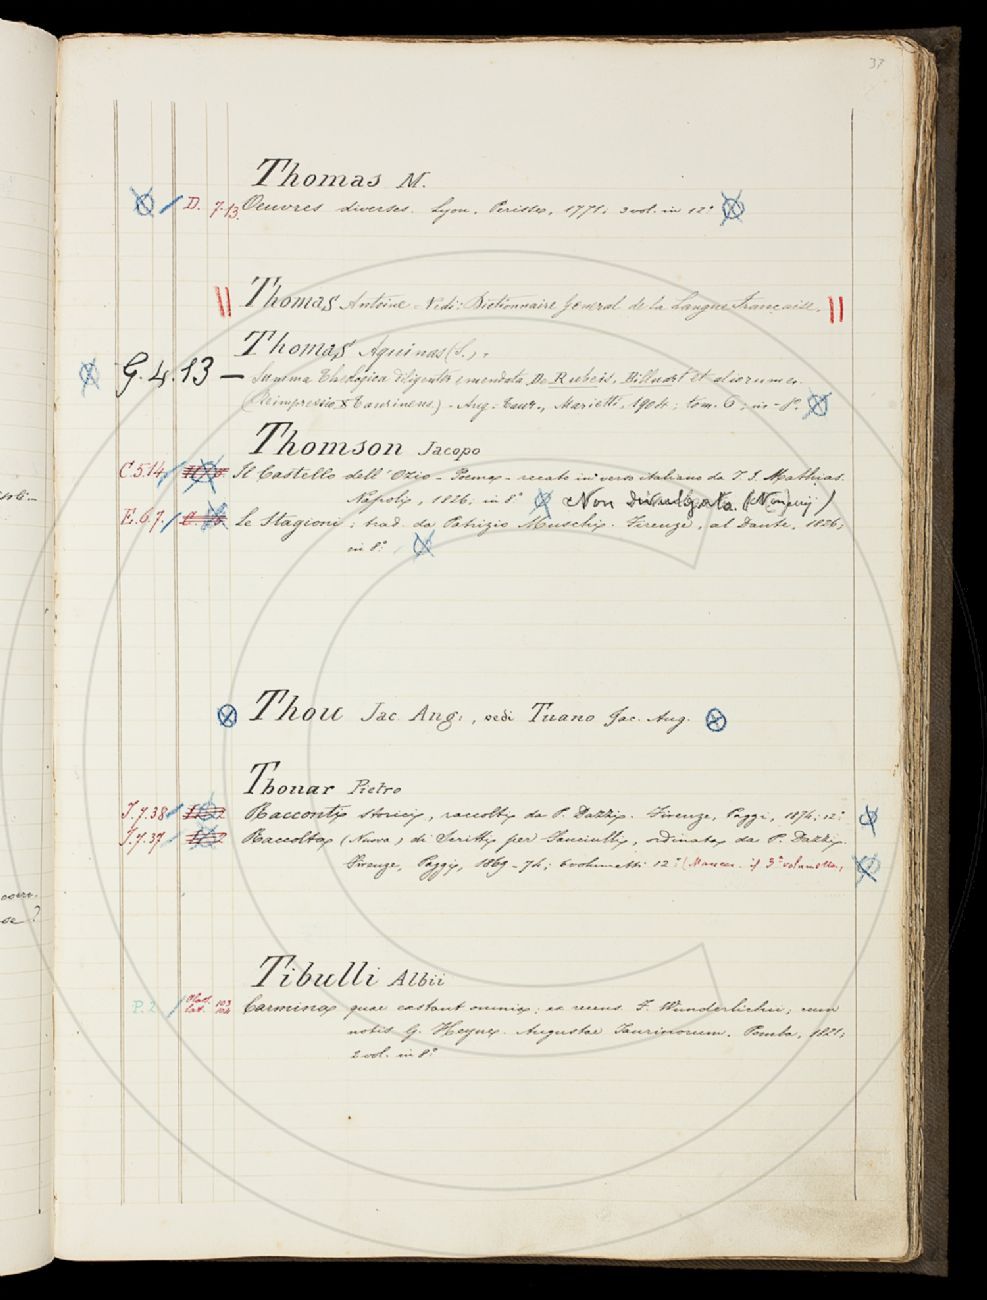 33
Thomas M.
D. 7.13 Oeuvres diverses. Lyon, Perisse, 1771; 3 vol. in 12°
Thomas Antoine - Vedi: Dictionnaire General de la Langue Française.
Thomas Aquinas (S.).
G.4.13 — Summa Theologica diligenter emendata De Rubeis, Billuart et aliorum
(Reimpressio Taurinens.) - Aug. Taur., Marietti, 1904; tom. 6; in-8°.
Thomson Jacopo
C.5.14 Il Castello dell'Ozio - Poema - recato in verso italiano da T. I. Mathias.
Napoli, 1826. in 8° Non divulgata.
E.6.7. Le Stagioni; trad. da Patrizio Muschi. Firenze, al Dante, 1826;
in 8°
Thou Jac. Aug., vedi Tuano Jac. Aug.
Thouar Pietro
I.7.38 Racconti storici, raccolti da P. Dazzi. Firenze, Paggi, 1874; 12°
I.7.37 Raccolta (Nuova) di Scritti per Fanciulli, ordinata da P. Dazzi.
Firenze, Paggi, 1869-74; 6 volumetti 12° (Manca il 3° volumetto,
Tibulli Albii
P.2 103 104 Carmina quae extant omnia; ex recens. F. Wunderlichii; cum
notis G. Heyne. Augustae Taurinorum. Pomba, 1821;
2 vol. in 8°